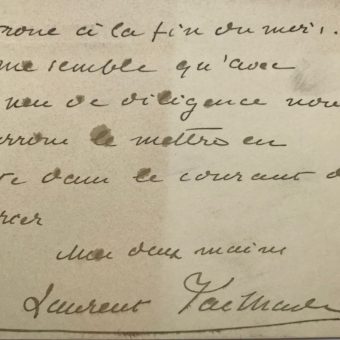 à la fin du mois.
me semble qu'avec
peu de diligence nou
rrons le mettre en
te dans le courant d
Mes deux mains
Laurent Tailhade